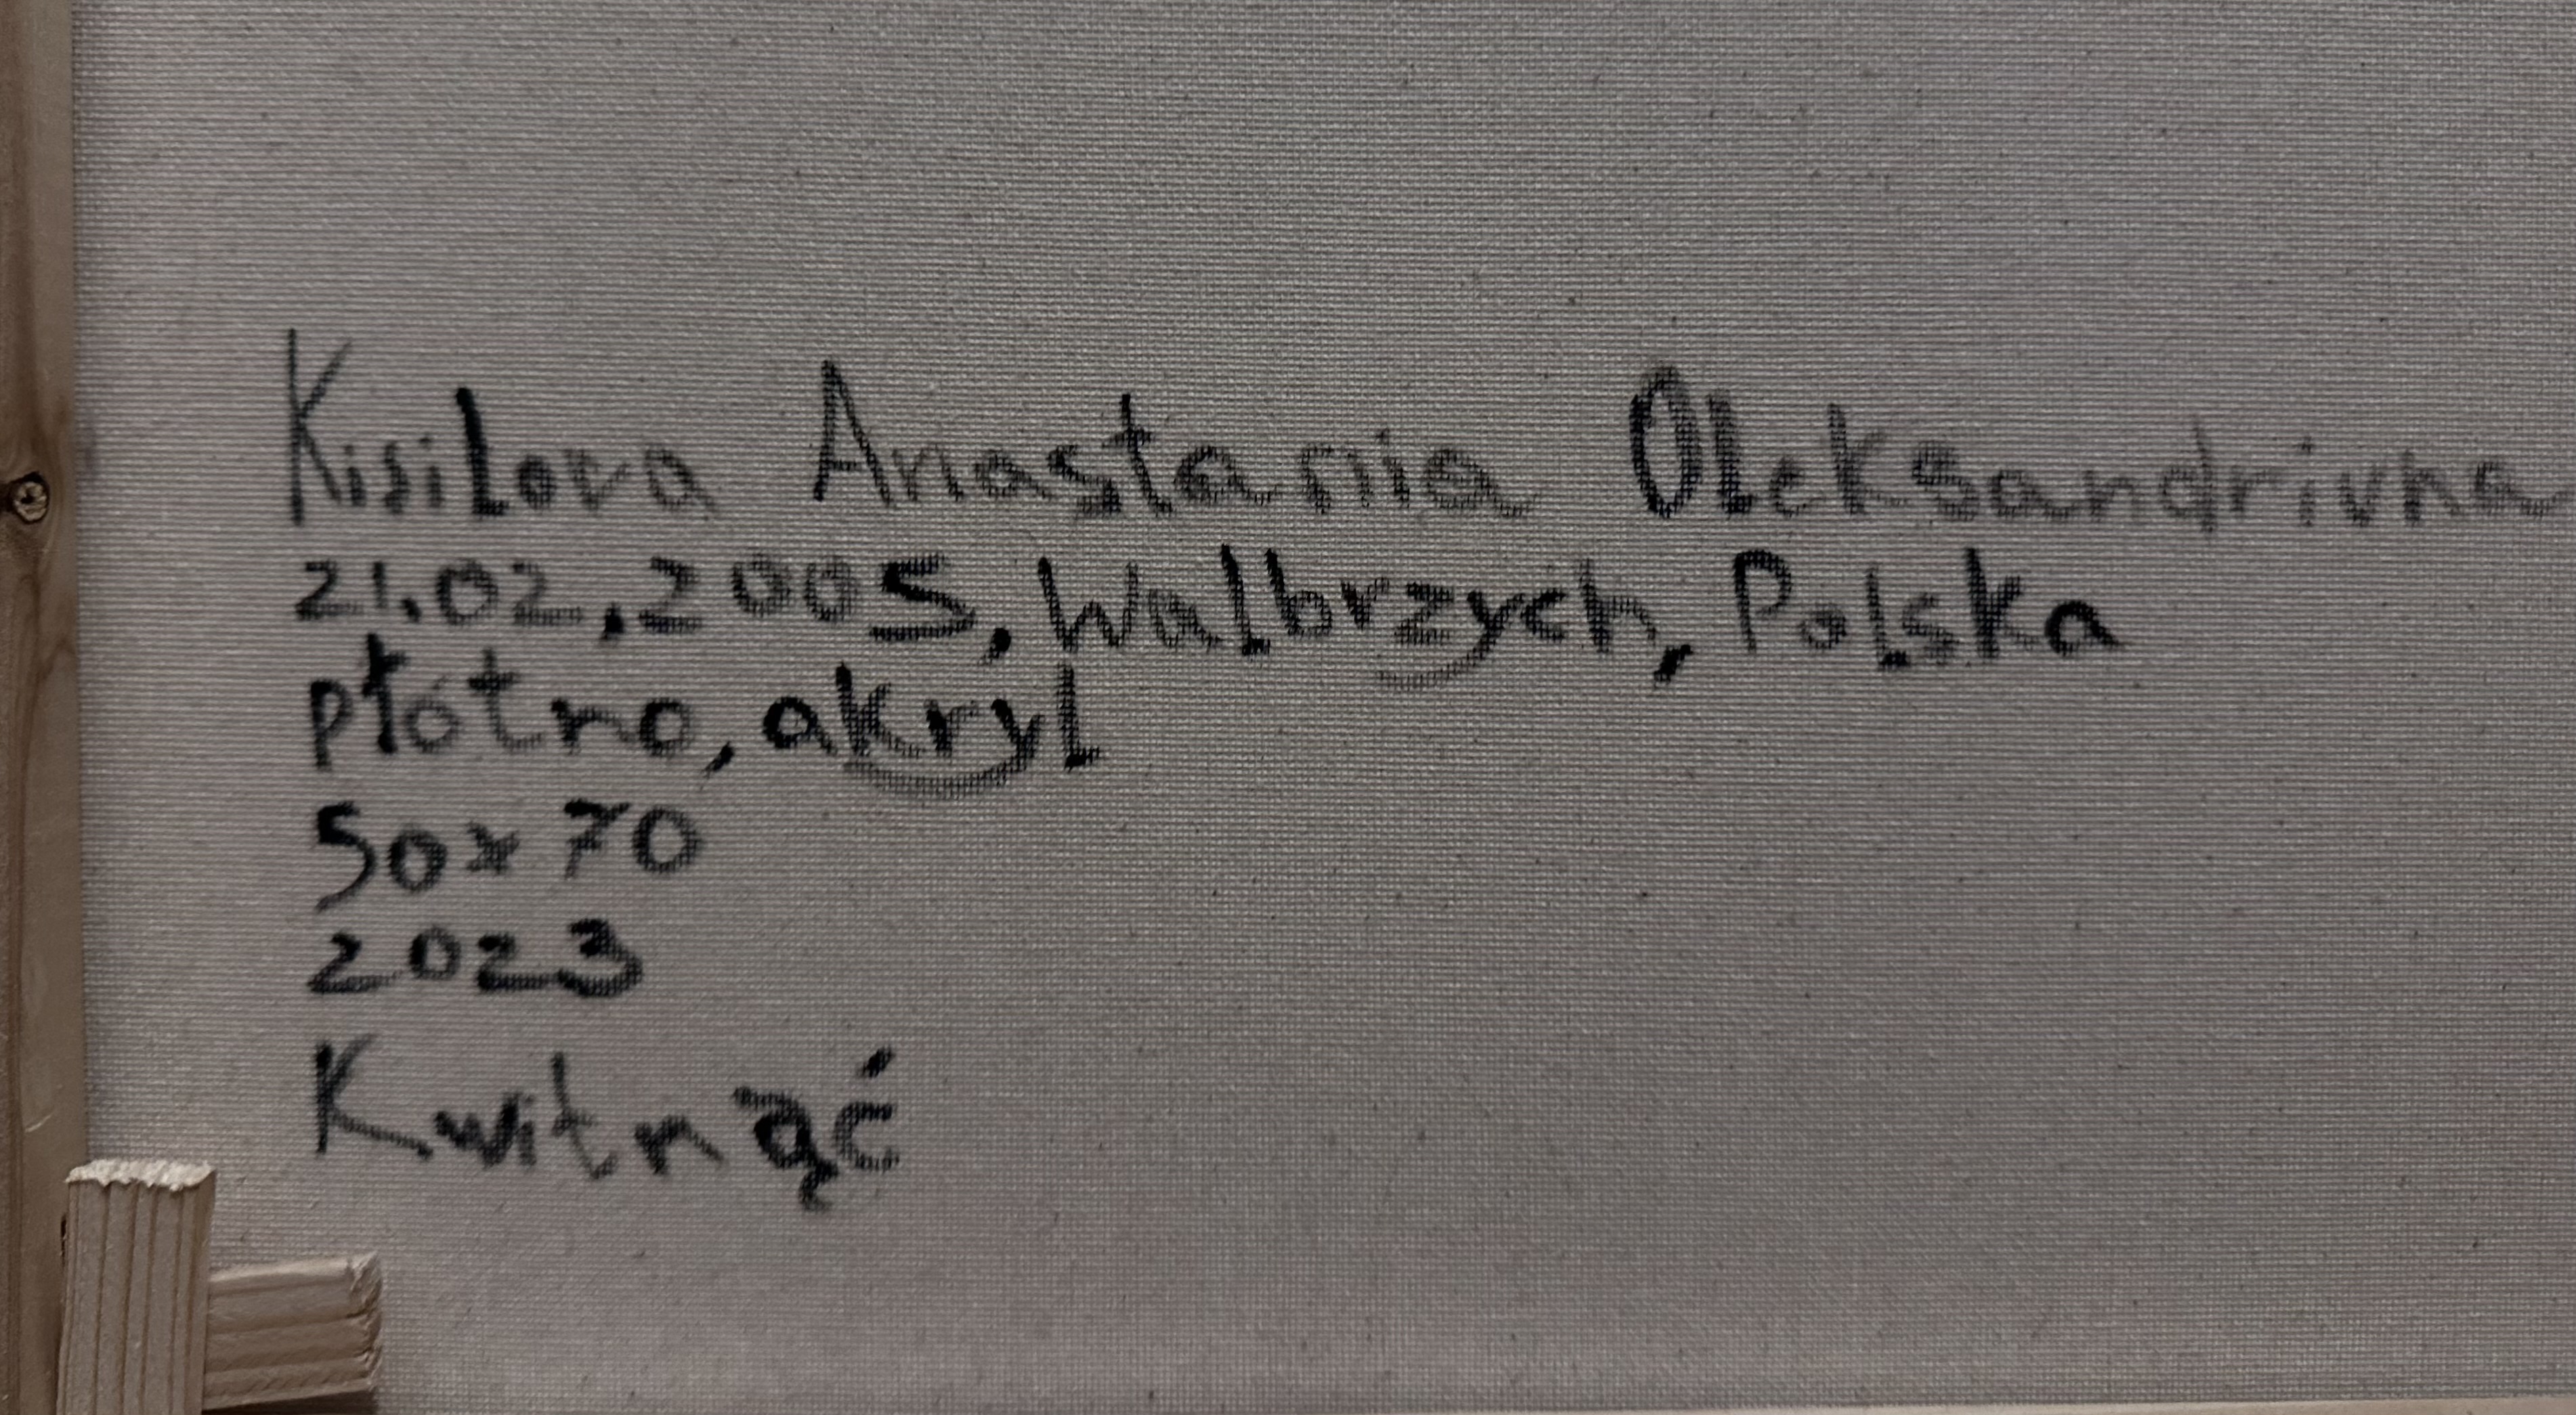 Kisilova Anastasiia Oleksandrivna
21.02.2005, Walbrzych, Polska
płótno, akryl
50x70
2023
Kwitnąć